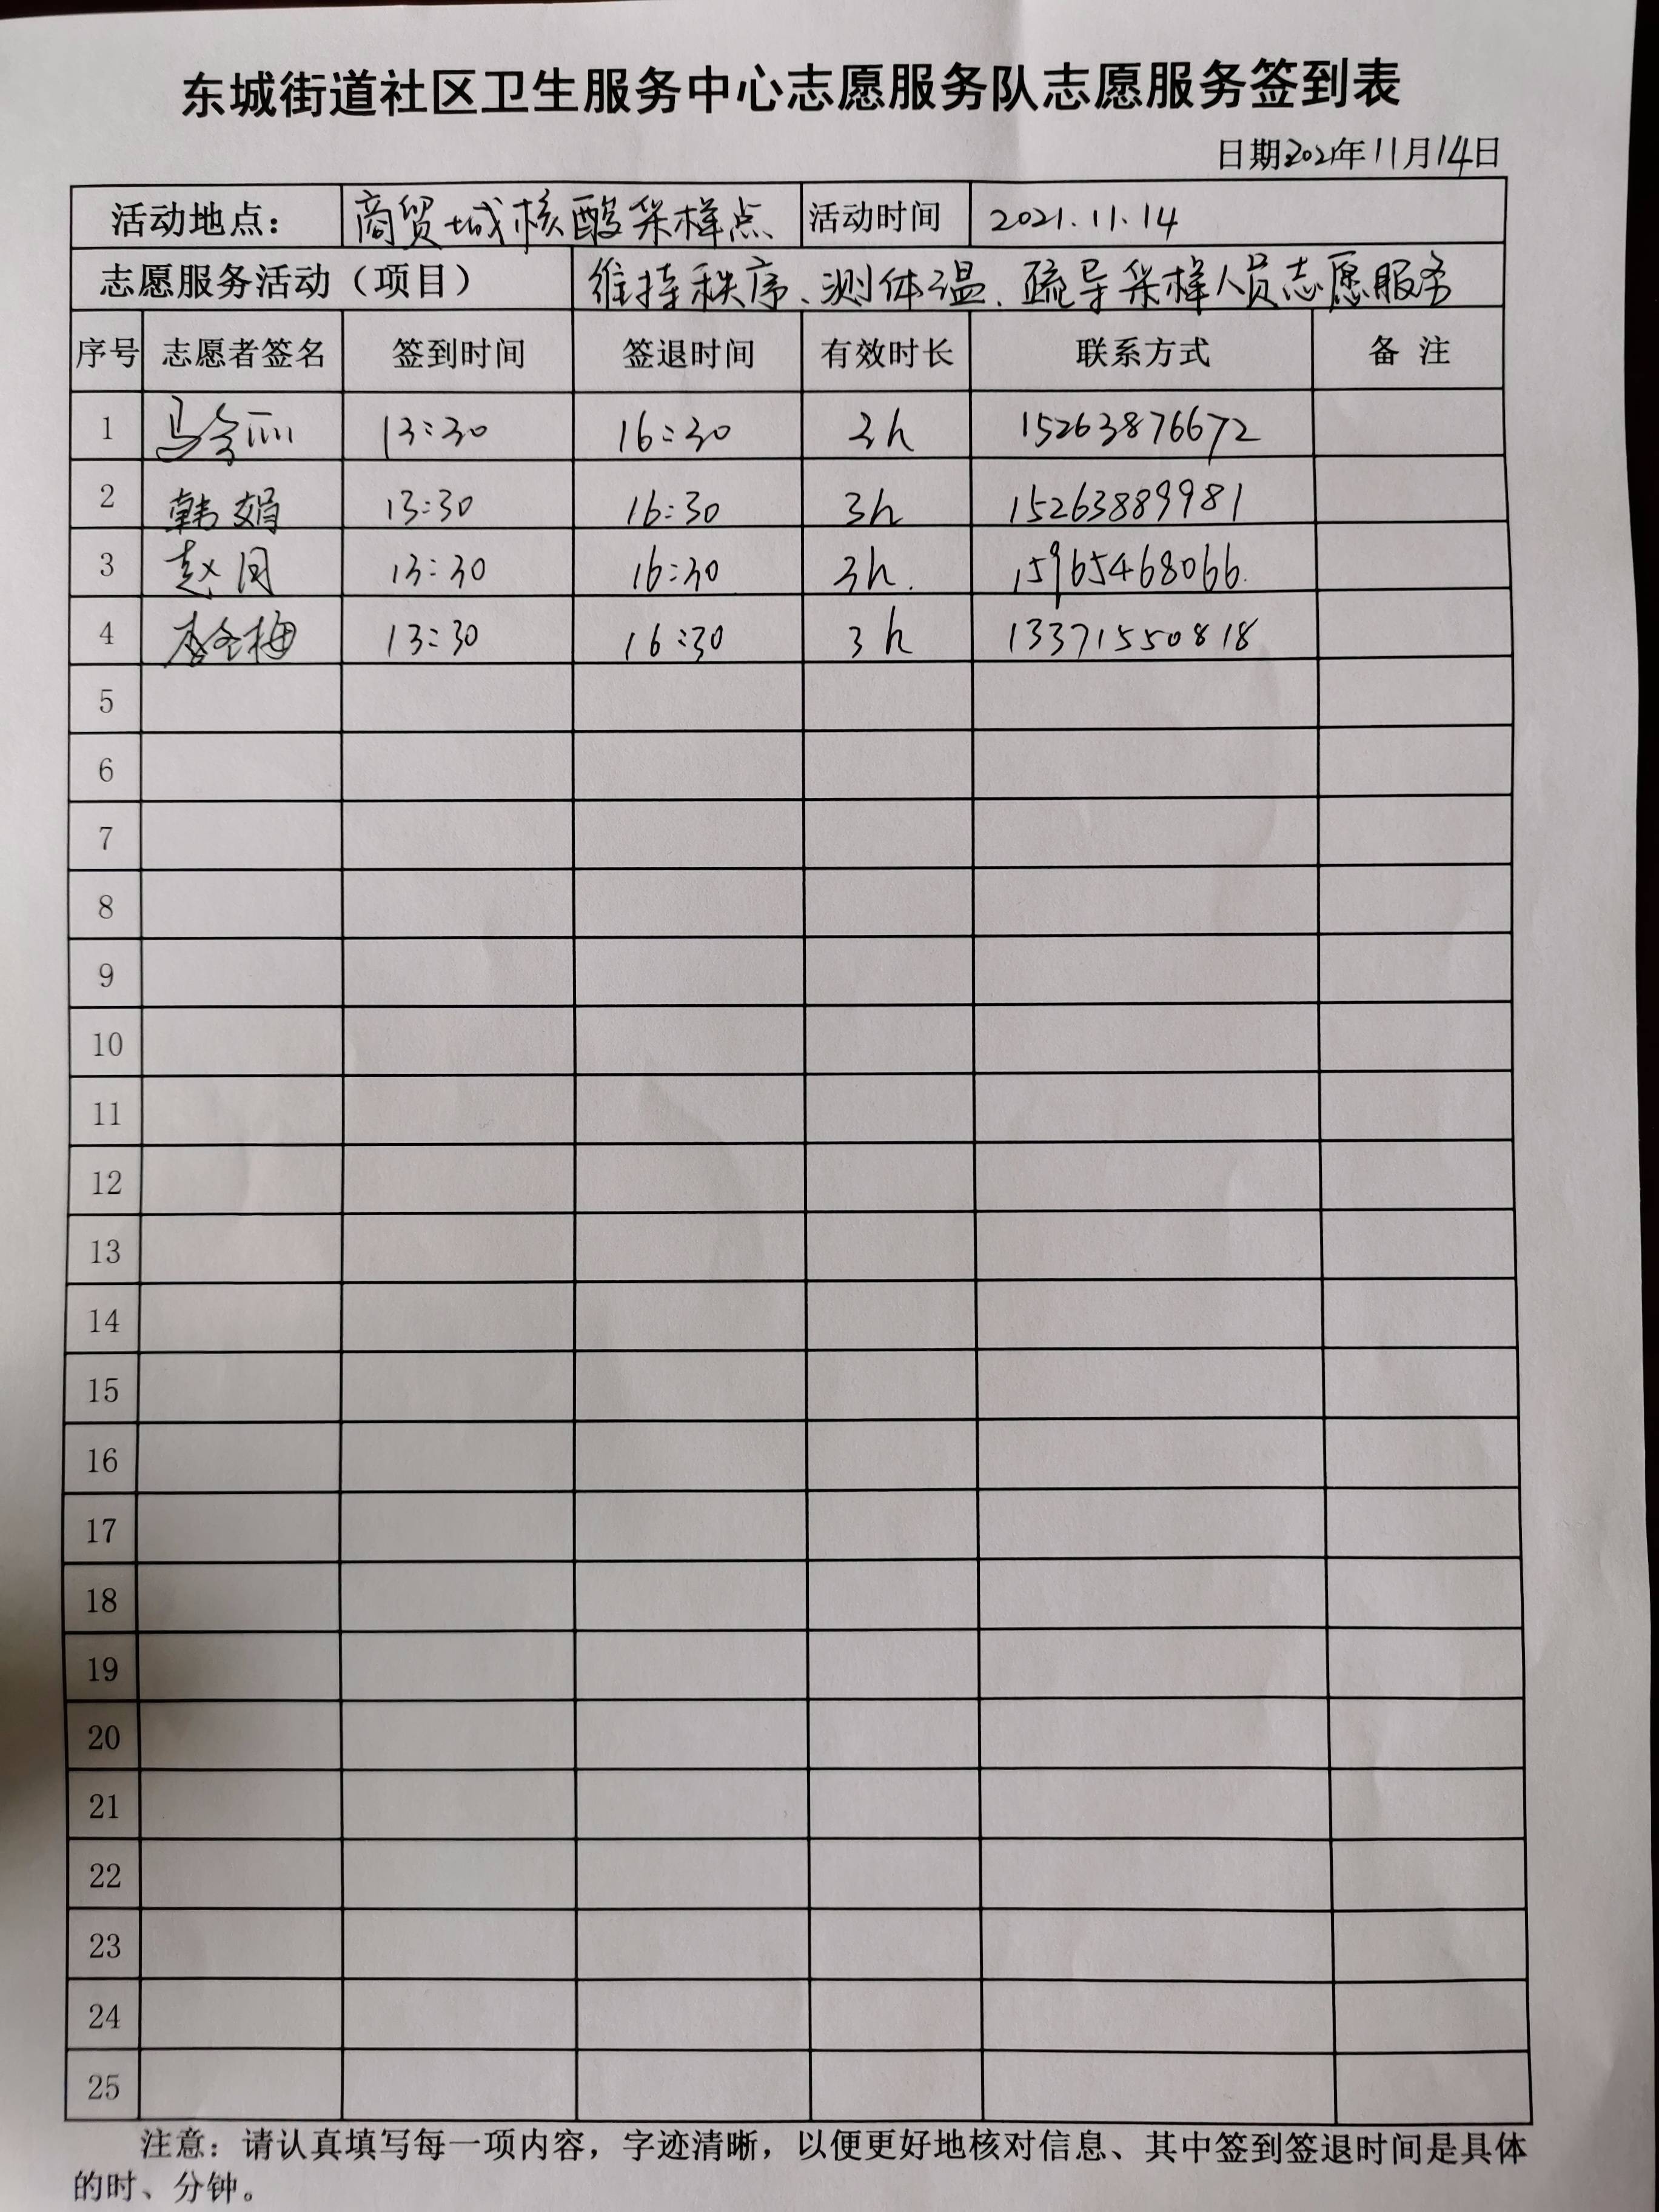 东城街道社区卫生服务中心志愿服务队志愿服务签到表
日期2021年11月14日
活动地点： 商贸城核酸采样点 活动时间 2021.11.14
志愿服务活动（项目） 维持秩序、测体温、疏导采样人员志愿服务
序号 志愿者签名 签到时间 签退时间 有效时长 联系方式 备 注
1 马 13:30 16:30 3h 15263876672
2 韩娟 13:30 16:30 3h 15263889981
3 赵 13:30 16:30 3h. 15965468066.
4 李冬梅 13:30 16:30 3h 13371550818
5
6
7
8
9
10
11
12
13
14
15
16
17
18
19
20
21
22
23
24
25
注意：请认真填写每一项内容，字迹清晰，以便更好地核对信息、其中签到签退时间是具体
的时、分钟。